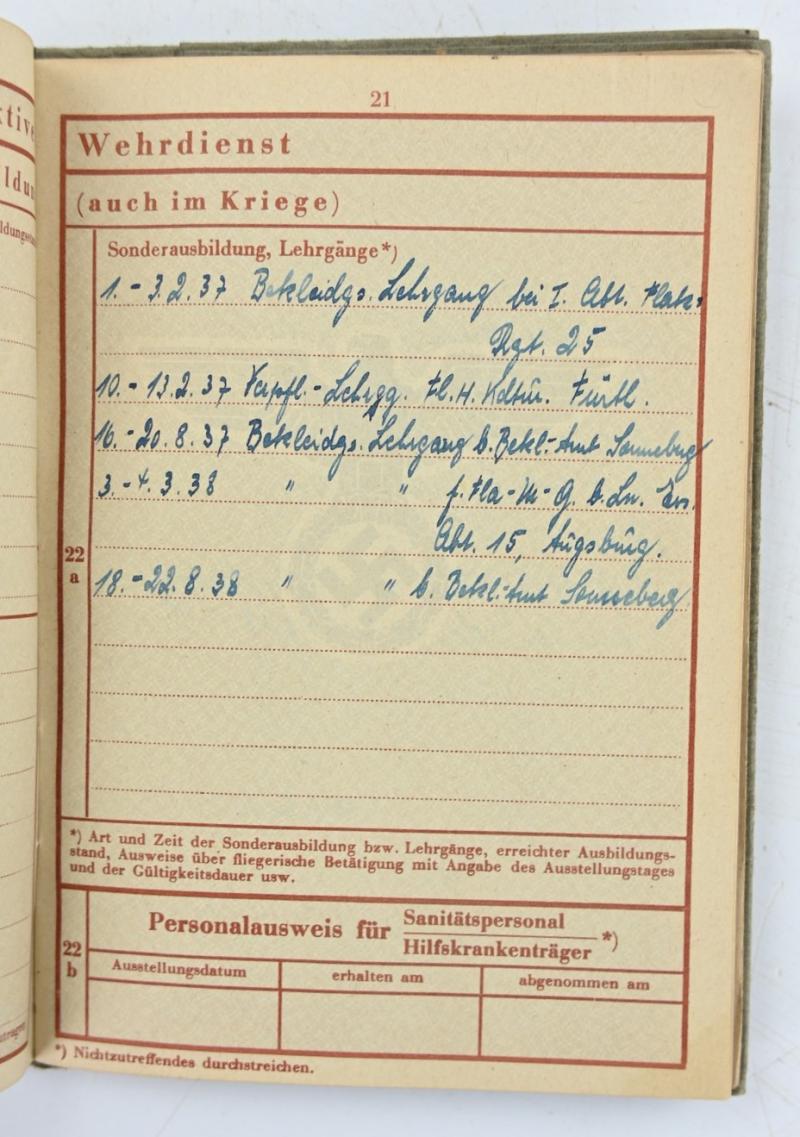 21
Wehrdienst
(auch im Kriege)
Sonderausbildung, Lehrgänge*)
1.-3.2.37 Bekleidgs. Lehrgang bei I. Abt. Flak-
Rgt. 25
10.-13.2.37 Verpfl.-Lehrgg. Fl. H. Kdtur. Fürth.
16.-20.8.37 Bekleidgs. Lehrgang b. Bekl.-Amt Sonneberg
3.-4.3.38 " " f. Fla-M-G. b. Ln. Ers.
Abt. 15, Augsburg.
22
a
18.-22.8.38 " " b. Bekl.-Amt Sonneberg
*) Art und Zeit der Sonderausbildung bzw. Lehrgänge, erreichter Ausbildungs-
stand, Ausweise über fliegerische Betätigung mit Angabe des Ausstellungstages
und der Gültigkeitsdauer usw.
22
b
Personalausweis für Sanitätspersonal
Hilfskrankenträger *)
Ausstellungsdatum erhalten am abgenommen am
*) Nichtzutreffendes durchstreichen.